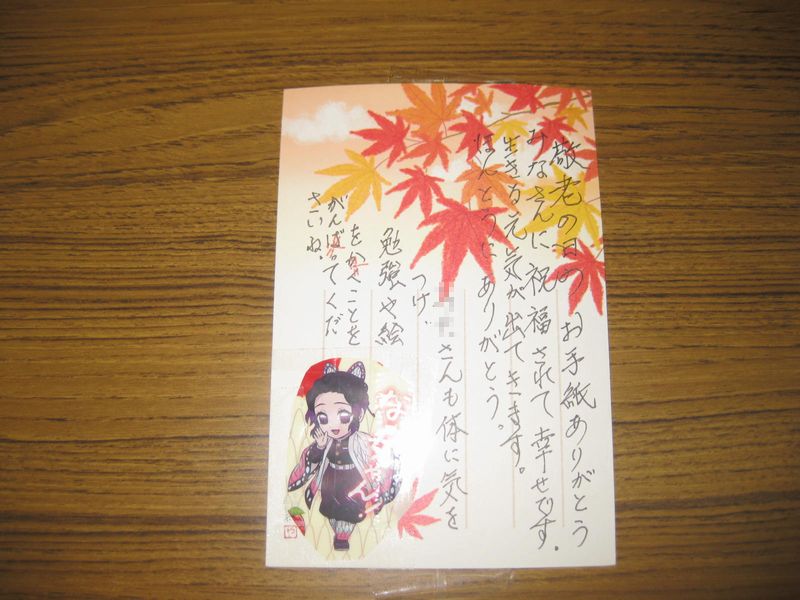 敬老の日のお手紙ありがとう.
みなさんに祝福されて幸せです。
生きる元気が出てきます。
ほんとうにありがとう。
さんも体に気を
つけ、
勉強や絵
をかくことを
がんばってくだ
さいね。